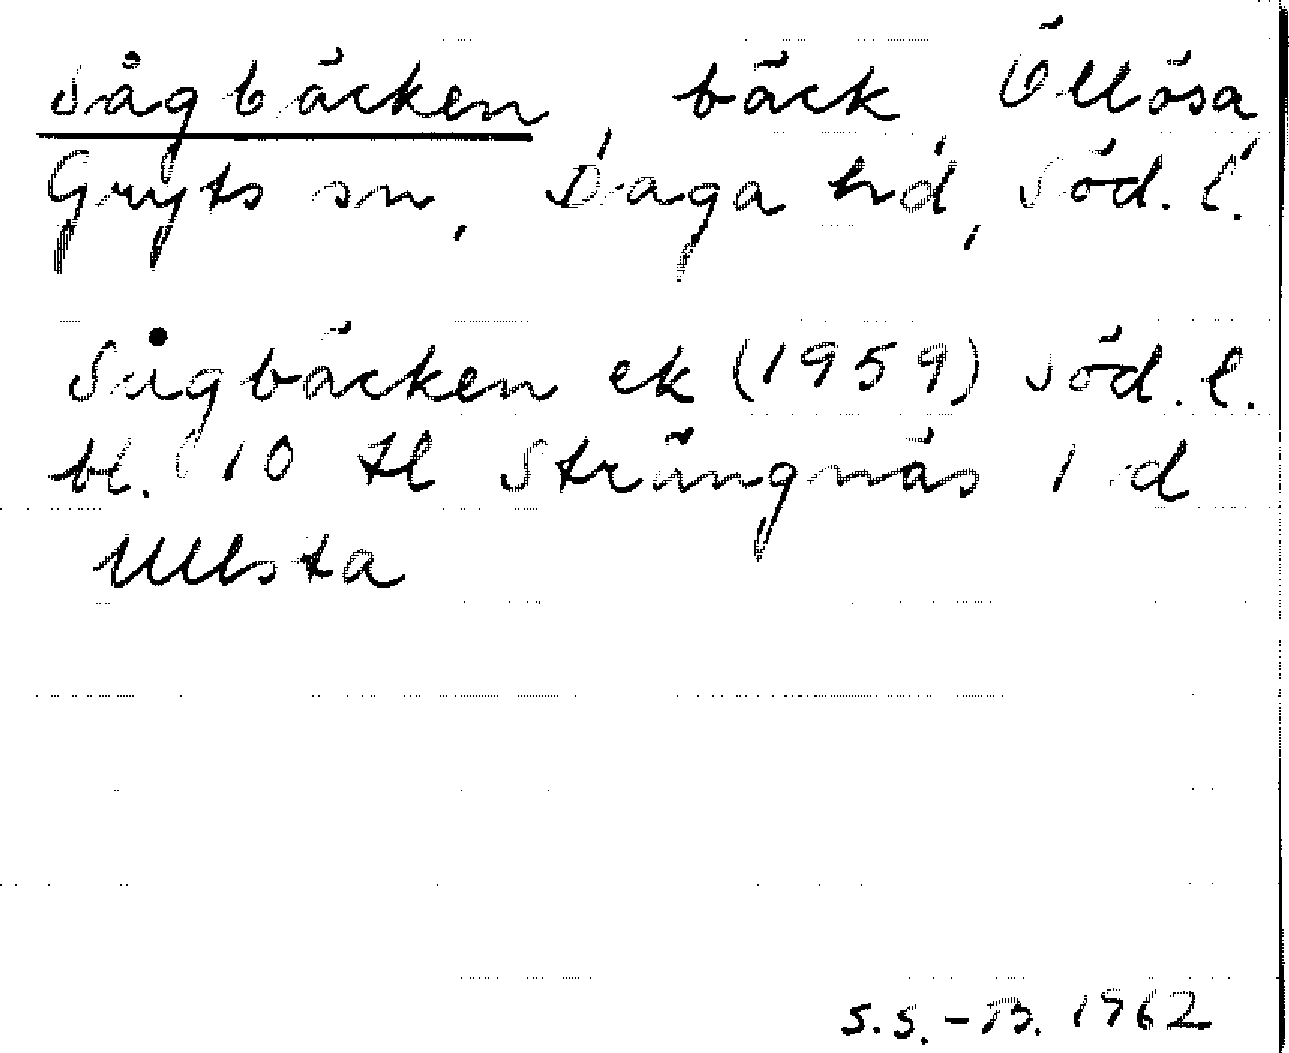 Sågbäcken, bäck, Öllösa
Gryts sn, Daga hd, Söd. l.
Sågbäcken ek (1959) Söd. l.
bl. 10 tl Strängnäs 1 d
Ullsta
S.S.-B. 1962